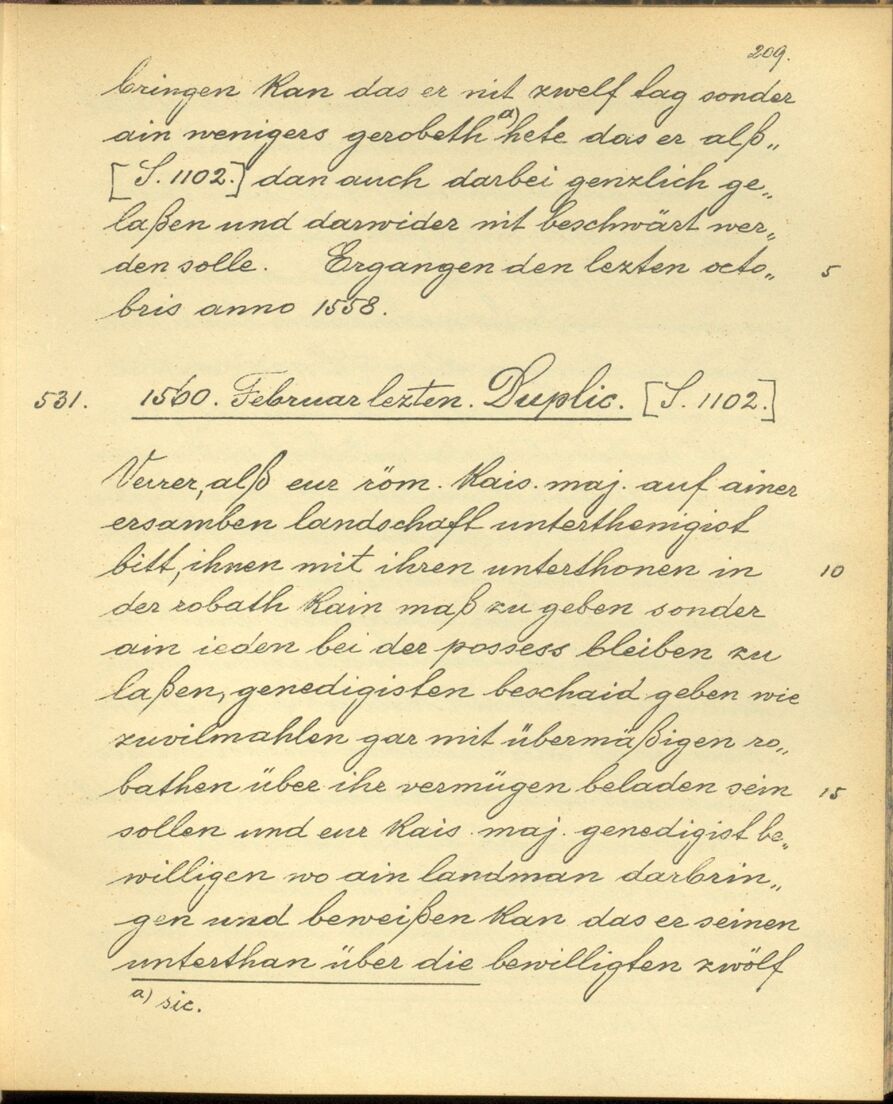 209.
bringen kan das er nit zwelf tag sonder
ain wenigers gerobeth a) hete das er alß„
[S. 1102.] dan auch darbei genzlich ge„
laßen und darwider nit beschwärt wer„
den solle. Ergangen den lezten octo„ 5
bris anno 1558.
531. 1560. Februar lezten. Duplic. [S. 1102.]
Verrer, alß eur röm. kais. maj. auf ainer
ersamben landschaft unterthenigist
bitt, ihnen mit ihren unterthonen in 10
der robath kain maß zu geben sonder
ain ieden bei der possess bleiben zu
laßen, genedigisten beschaid geben wie
zuvilmahlen gar mit übermäßigen ro„
bathen über ihr vermügen beladen sein 15
sollen und eur kais. maj. genedigist be„
willigen wo ain landman darbrin„
gen und beweißen kan das er seinen
unterthan über die bewilligten zwölf
a) sic.